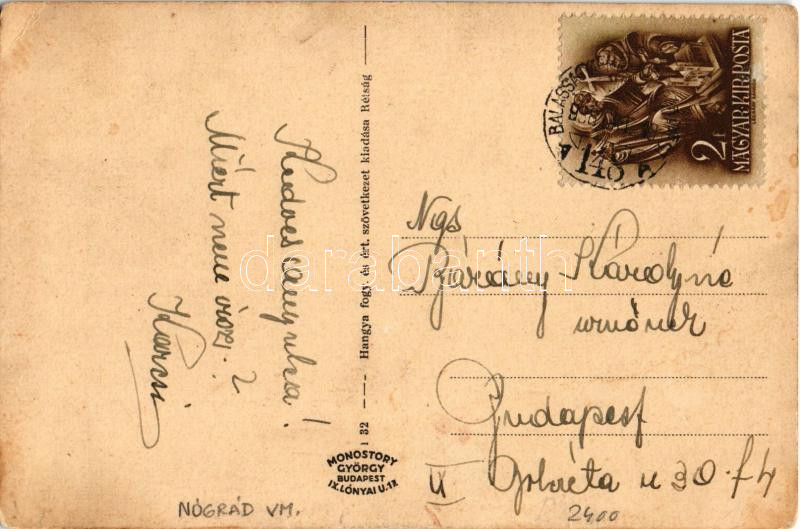 Kedves anyuka!
Miért nem írsz?
Karcsi
Hangya fogy. és ért. szövetkezet kiadása Rétság
1 32
MONOSTORY
GYÖRGY
BUDAPEST
IX. LÓNYAI U. 17
NÓGRÁD VM.
2 f
MAGYAR KIR. POSTA
140
A A
Ngs
Bárány Károlyné
úrnőnek
Budapest
IX u 30. f4
2400
darabanth